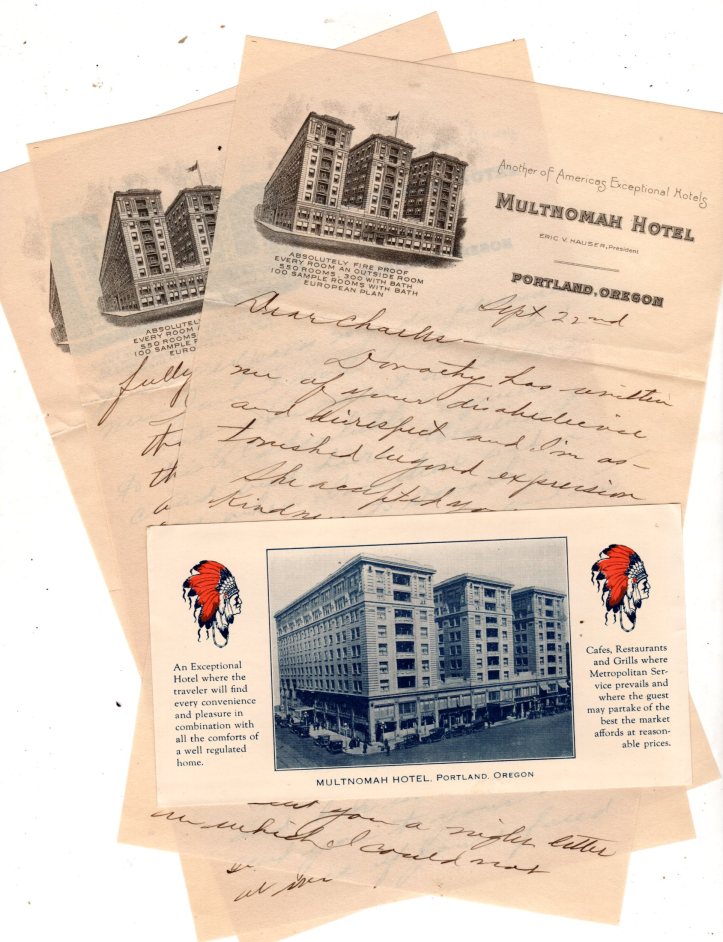 Another of Americas Exceptional Hotels
MULTNOMAH HOTEL
ERIC V. HAUSER, President
PORTLAND, OREGON
ABSOLUTELY FIRE PROOF
EVERY ROOM AN OUTSIDE ROOM
550 ROOMS - 300 WITH BATH
100 SAMPLE ROOMS WITH BATH
EUROPEAN PLAN
Sept. 22nd
Dear Charles -
Dorothy has written
me of your disobedience
and disrespect and I'm as-
tonished beyond expression
She accepted yo
Kindne
ABSOLUTELY
EVERY ROOM A
550 ROOMS
100 SAMPLE R
EURO
fully
the
th
An Exceptional
Hotel where the
traveler will find
every convenience
and pleasure in
combination with
all the comforts of
a well regulated
home.
MULTNOMAH HOTEL, PORTLAND, OREGON
Cafes, Restaurants
and Grills where
Metropolitan Ser-
vice prevails and
where the guest
may partake of the
best the market
affords at reason-
able prices.
you a night letter
in which I could not